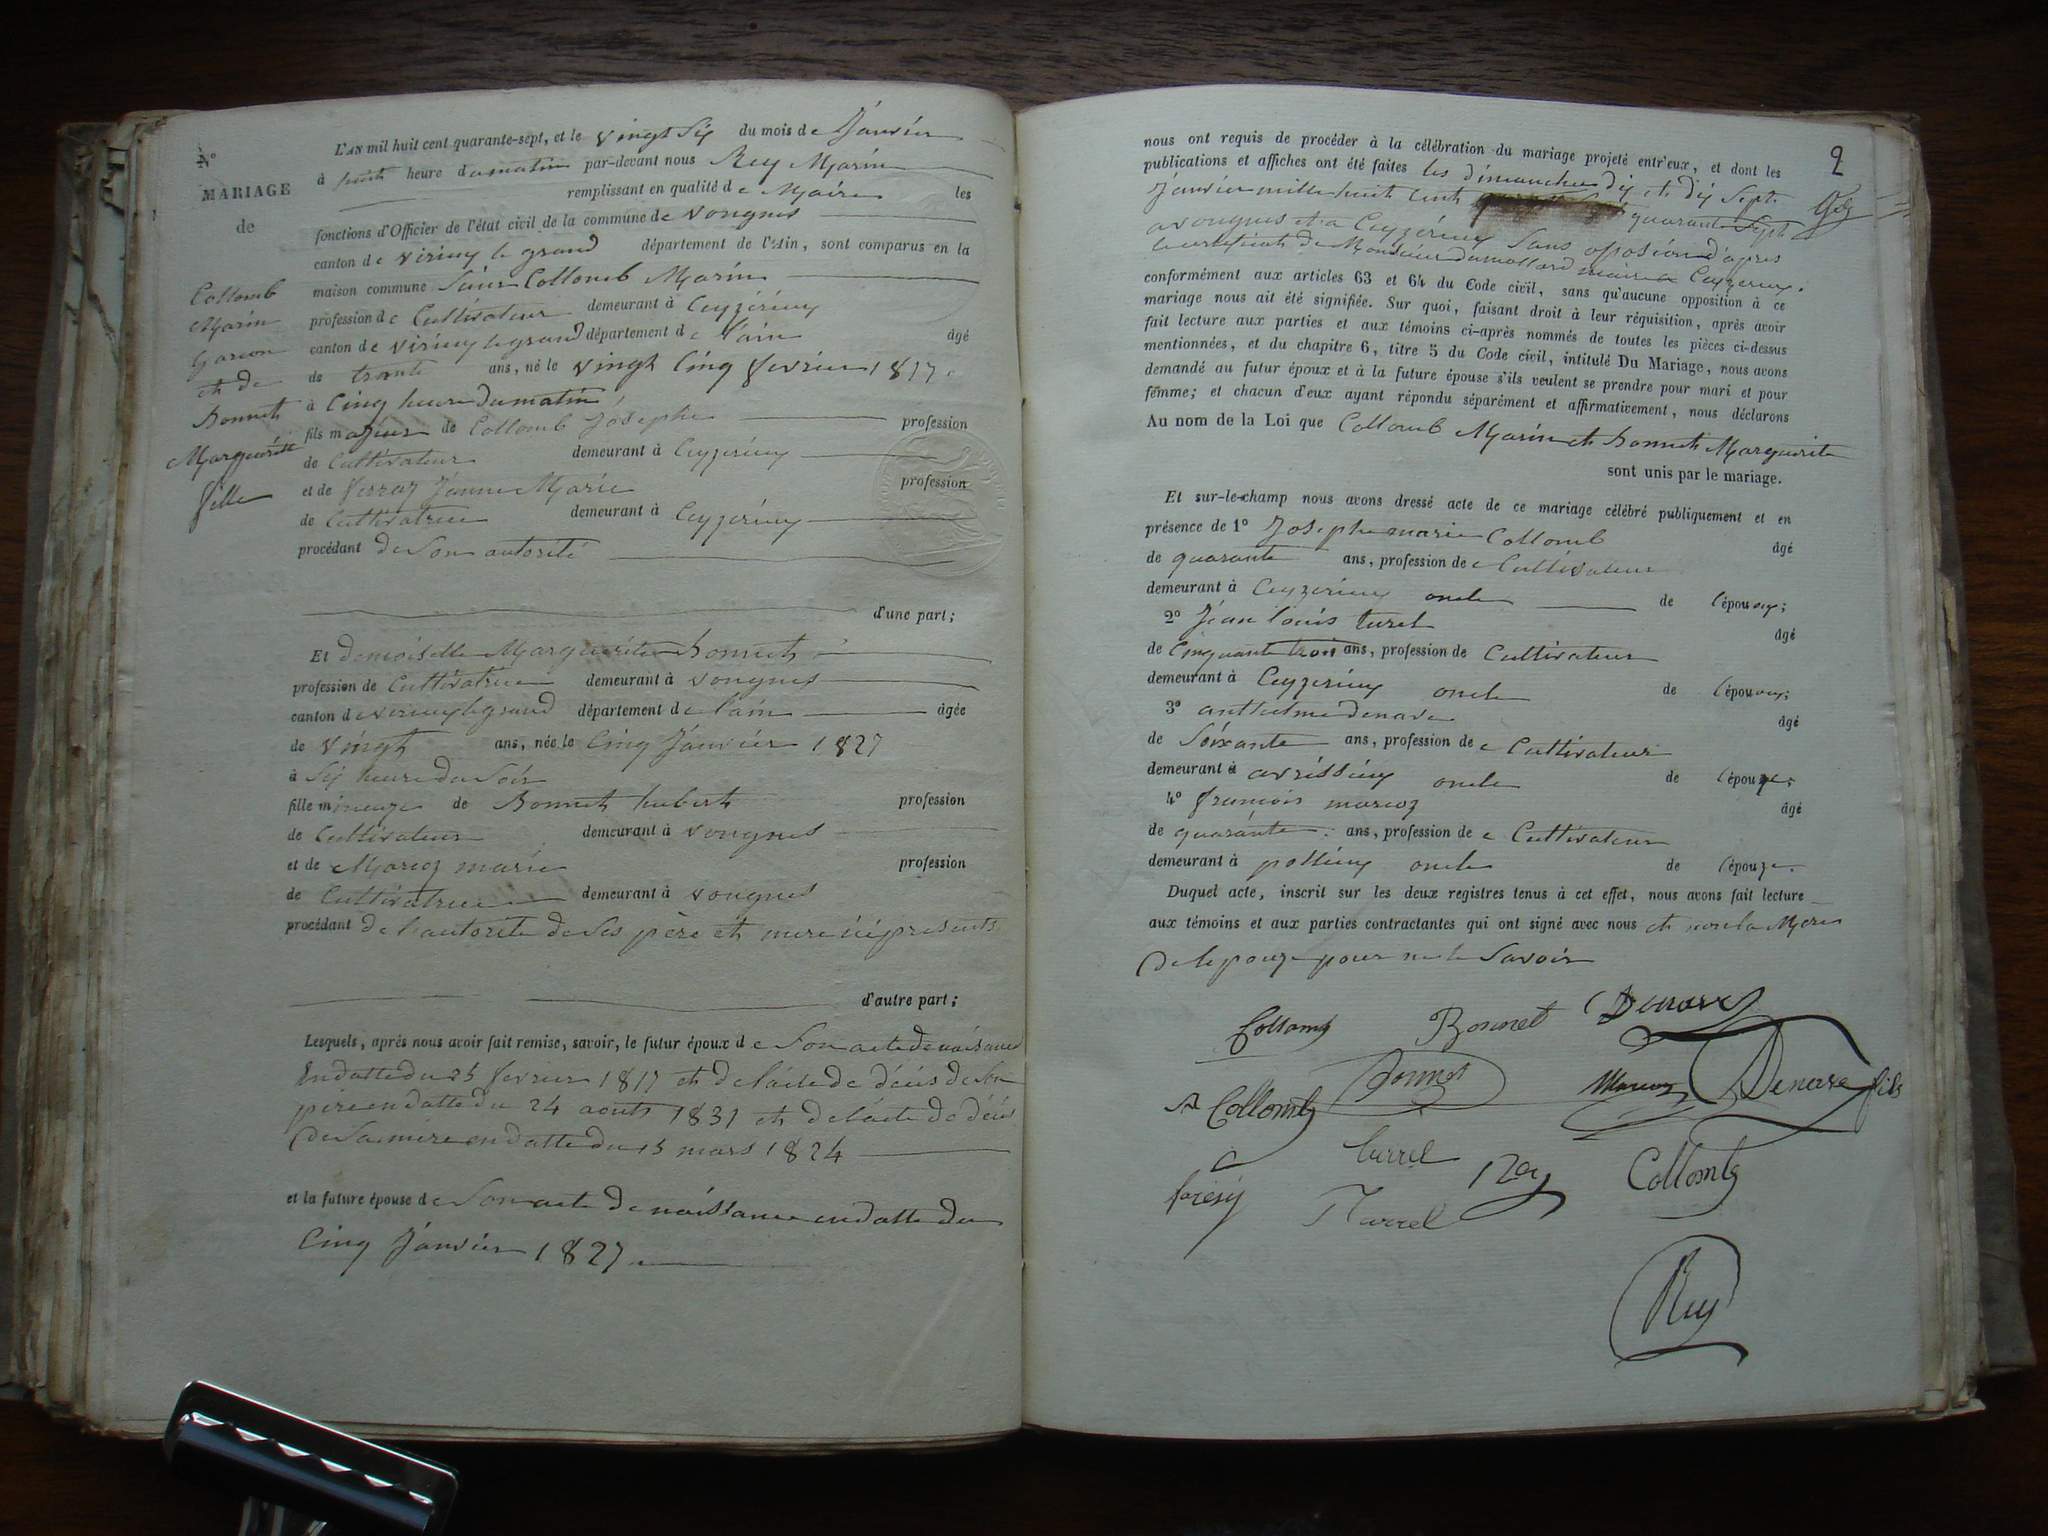 N°
MARIAGE
de
Collomb
Marin
Garcon
et de
Bonnet
Marguerite
fille
L'AN mil huit cent quarante-sept, et le vingt Six du mois de Janvier
à huit heure du matin par-devant nous Rey Marin
remplissant en qualité de Maire les
fonctions d'Officier de l'état civil de la commune de vongnes
canton de virieu le grand département de l'Ain, sont comparus en la
maison commune Sieur Collomb Marin
profession de Cultivateur demeurant à Ceyzérieu
canton de virieu le grand département de l'ain âgé
de trante ans, né le vingt Cinq fevrier 1817
à Cinq heure du matin
fils majeur de Collomb Josephe profession
de Cultivateur demeurant à Ceyzerieu
et de ferraz Janne Marie profession
de Cultivatrice demeurant à Ceyzerieu
procédant de Son autorité
d'une part;
Et demoiselle Marguerite Bonnet
profession de Cultivatrice demeurant à vongnes
canton de virieu le grand département de l'ain âgée
de vingt ans, née le Cinq Janvier 1827
à Six heure du Soir
fille mineuze de Bonnet hubert profession
de Cultivateur demeurant à vongnes
et de Marcoz marie profession
de Cultivatrice demeurant à vongnes
procédant de l'autorité de Ses père et mere ici presents
d'autre part;
Lesquels, après nous avoir fait remise, savoir, le futur époux de Son acte de naisance
En datte du 25 fevrier 1817 et de l'acte de décés de Son
pere en datte du 24 aout 1831 et de l'acte de décés
de Sa mere en datte du 15 mars 1824
et la future épouse de Son acte de naissance en datte du
Cinq Janvier 1827
2
nous ont requis de procéder à la célébration du mariage projeté entr'eux, et dont les
publications et affiches ont été faites les dimanches dix et dix Sept
Janvier mille huit cent quarante Sept
a vongnes et a Ceyzérieu Sans oposion d'apres
le certificat de Monsieur dumollard maire a Ceyzerieu.
conformément aux articles 63 et 64 du Code civil, sans qu'aucune opposition à ce
mariage nous ait été signifiée. Sur quoi, faisant droit à leur réquisition, après avoir
fait lecture aux parties et aux témoins ci-après nommés de toutes les pièces ci-dessus
mentionnées, et du chapitre 6, titre 5 du Code civil, intitulé Du Mariage, nous avons
demandé au futur époux et à la future épouse s'ils veulent se prendre pour mari et pour
femme; et chacun d'eux ayant répondu séparément et affirmativement, nous déclarons
Au nom de la Loi que Collomb Marin et Bonnet Marguerite
sont unis par le mariage.
Et sur-le-champ nous avons dressé acte de ce mariage célébré publiquement et en
présence de 1° Josephe marie Collomb âgé
de quarante ans, profession de Cultivateur
demeurant à Ceyzerieu oncle de l'époux;
2° Jean louis turel âgé
de Cinquante trois ans, profession de Cultivateur
demeurant à Ceyzerieu oncle de l'époux;
3° anthelme denave âgé
de Soixante ans, profession de Cultivateur
demeurant à avrissieu oncle de l'épouze;
4° francois marcoz âgé
de quarante ans, profession de Cultivateur
demeurant à pollieu oncle de l'épouze.
Duquel acte, inscrit sur les deux registres tenus à cet effet, nous avons fait lecture
aux témoins et aux parties contractantes qui ont signé avec nous et non la Mere
de lepouze pour ne le Savoir
Collomb Bonnet
Collomb Bonnet Marcoz fils
turrel Rey Collomb
Turrel
Rey